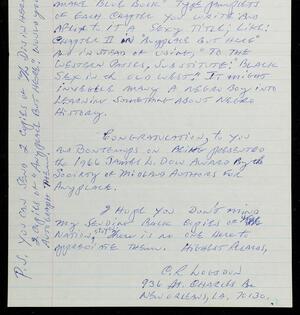 MAKE BLUE BOOK" TYPE PAMPHLETS
OF EACH CHAPTER YOU WRITE AND
AFFIX TO IT A SEXY TITLE, LIKE:
CHAPTER II IN "ANYPLACE BUT HERE"
AND INSTEAD OF USING, "TO THE
WESTERN OASES, SUBSTITUTE: "BLACK
SEX IN THE OLD WEST." IT MIGHT
INVEIGLE MANY A NEGRO BOY INTO
LEARNING SOMETHING ABOUT NEGRO
HISTORY.
CONGRATULATIONS, TO YOU
AND BONTEMPS ON BEING PRESENTED
THE 1966 JAMES L. DOW AWARD BY THE
SOCIETY OF MIDLAND AUTHORS FOR
ANYPLACE.
I HOPE YOU DON'T MIND
MY SENDING BACK COPIES OF THE
NATION, THERE IS NO ONE HERE TO
APPRECIATE THEM. HIGHEST REGARDS,
C.R. LOGSDON
936 ST. CHARLES AVE
NEW ORLEANS, LA. 70130.
P.S. YOU CAN SEND 2 COPIES OF THE
2 COPIES OF "ANYPLACE BUT HERE." WOULD YOU
AUTOGRAPH THEM.